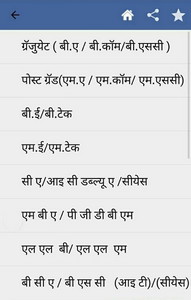 ग्रॅजुयेट ( बी.ए / बी.कॉम/बी.एससी )
पोस्ट ग्रॅड(एम.ए / एम.कॉम/ एम.एससी)
बी.ई/बी.टेक
एम.ई/एम.टेक
सी ए/आइ सी डब्ल्यू ए /सीयेस
एम बी ए / पी जी डी बी एम
एल एल  बी/ एल एल  एम
बी सी ए / बी एस सी   (आइ टी)/(सीयेस)